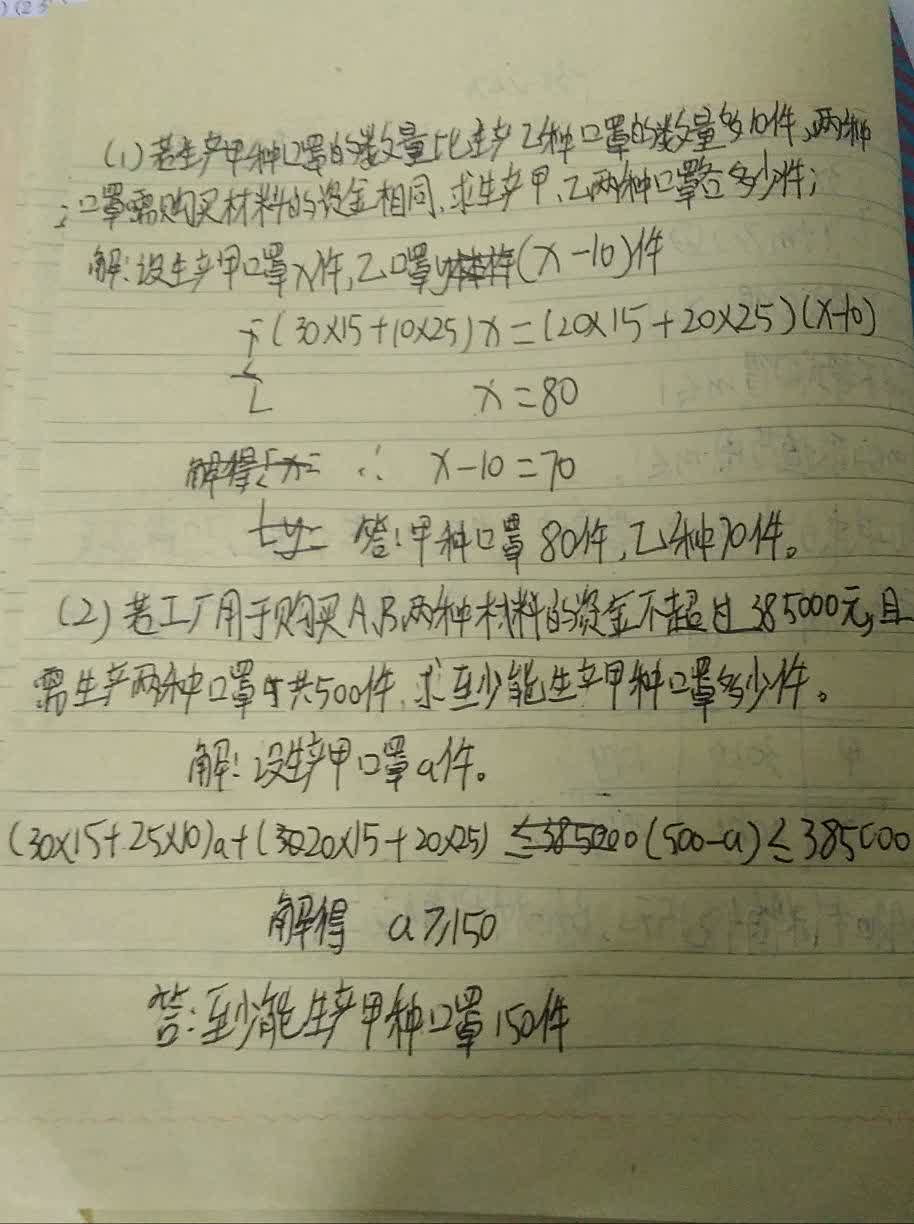 (1)若生产甲种口罩的数量比生产乙种口罩的数量多10件,两种
口罩需购买材料的资金相同,求生产甲、乙两种口罩各多少件;
解:设生产甲口罩x件,乙口罩(x-10)件
(30×15+10×25)x=(20×15+20×25)(x-10)
x=80
∴ x-10=70
答:甲种口罩80件,乙种70件。
(2)若工厂用于购买A,B两种材料的资金不超过385000元,且
需生产两种口罩共500件,求至少能生产甲种口罩多少件。
解:设生产甲口罩a件。
(30×15+25×10)a+(20×15+20×25)(500-a)≤385000
解得 a≥150
答:至少能生产甲种口罩150件